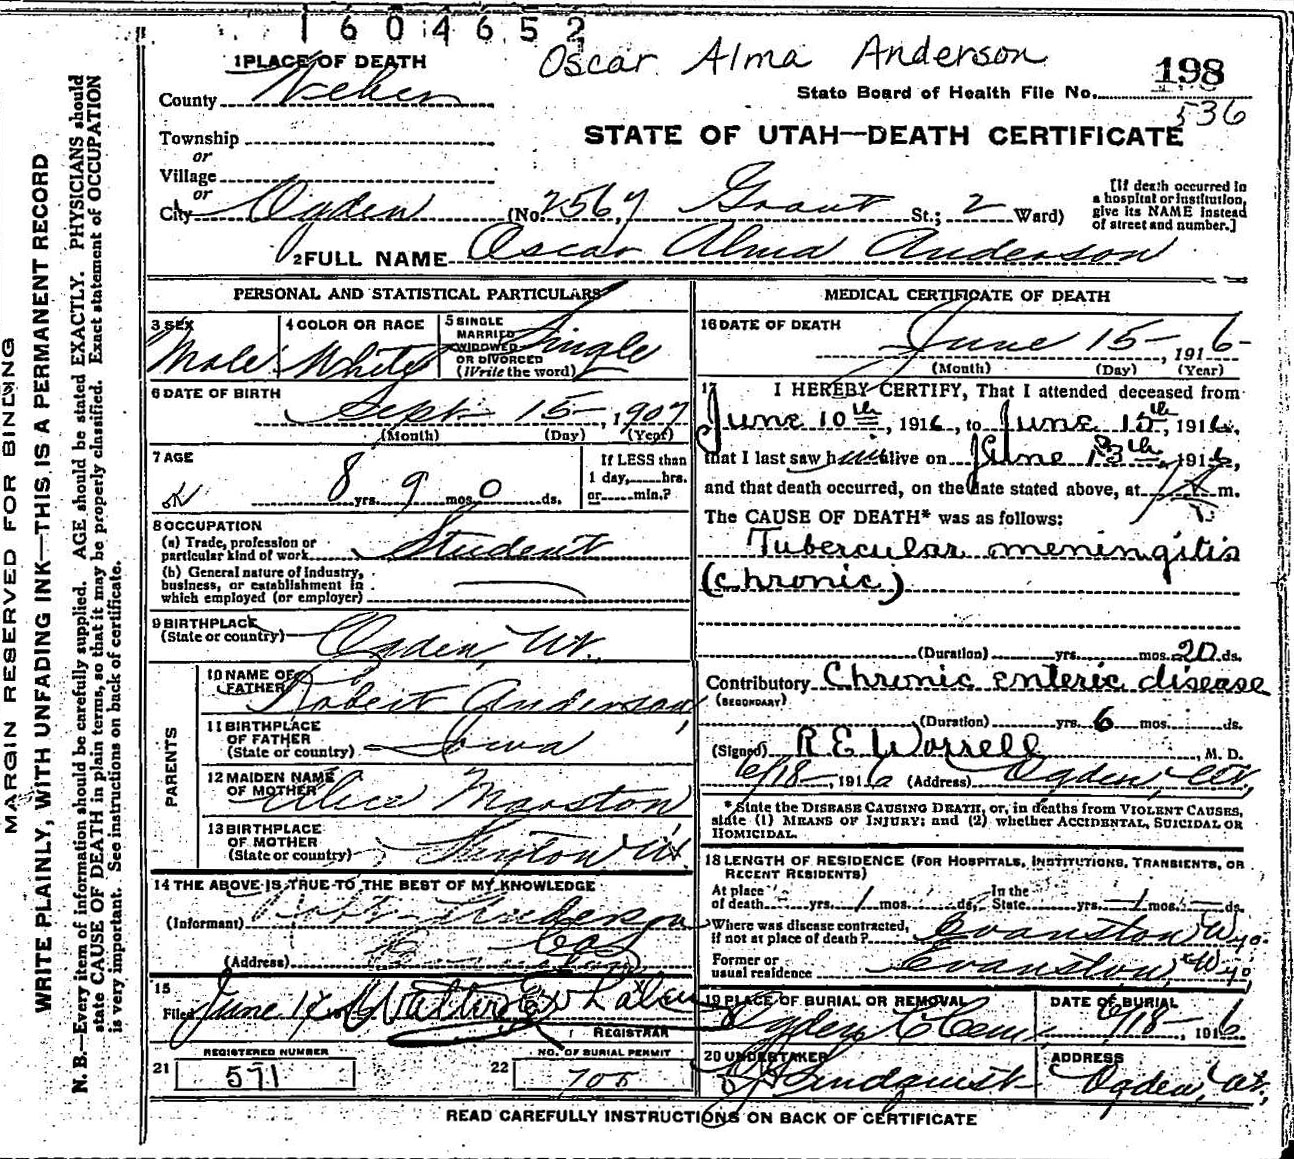 1604652
Oscar Alma Anderson
1 PLACE OF DEATH
198
County Weber
State Board of Health File No. 536
Township
STATE OF UTAH—DEATH CERTIFICATE
or
Village
or
City Ogden (No. 2567 Grant St.; 2 Ward)
[If death occurred in
a hospital or institution,
give its NAME instead
of street and number.]
2 FULL NAME Oscar Alma Anderson
PERSONAL AND STATISTICAL PARTICULARS
3 SEX
Male
4 COLOR OR RACE
White
5 SINGLE
MARRIED
WIDOWED
OR DIVORCED
(Write the word)
Single
6 DATE OF BIRTH
Sept 15, 1907
(Month) (Day) (Year)
7 AGE
8 yrs. 9 mos. 0 ds.
If LESS than
1 day, hrs.
or min.?
8 OCCUPATION
(a) Trade, profession or
particular kind of work Student
(b) General nature of industry,
business, or establishment in
which employed (or employer)
9 BIRTHPLACE
(State or country) Ogden, Ut.
PARENTS
10 NAME OF
FATHER Robert Anderson
11 BIRTHPLACE
OF FATHER
(State or country) Iowa
12 MAIDEN NAME
OF MOTHER Alice Marston
13 BIRTHPLACE
OF MOTHER
(State or country) Ut.
14 THE ABOVE IS TRUE TO THE BEST OF MY KNOWLEDGE
(Informant) Robt Anderson
(Address)
15
Filed June
REGISTRAR
21 REGISTERED NUMBER
571
22 NO. OF BURIAL PERMIT
705
MEDICAL CERTIFICATE OF DEATH
16 DATE OF DEATH
June 15, 1916
(Month) (Day) (Year)
17 I HEREBY CERTIFY, That I attended deceased from
June 10th, 1916, to June 15th, 1916,
that I last saw him alive on June 13th, 1916,
and that death occurred, on the date stated above, at m.
The CAUSE OF DEATH* was as follows:
Tubercular meningitis
(chronic)
(Duration) yrs. mos. 20 ds.
Contributory Chronic enteric disease
(SECONDARY)
(Duration) yrs. 6 mos. ds.
(Signed) R E Worrell, M. D.
6/18, 1916 (Address) Ogden, Ut.
*State the DISEASE CAUSING DEATH, or, in deaths from VIOLENT CAUSES,
state (1) MEANS OF INJURY; and (2) whether ACCIDENTAL, SUICIDAL OR
HOMICIDAL.
18 LENGTH OF RESIDENCE (FOR HOSPITALS, INSTITUTIONS, TRANSIENTS, OR
RECENT RESIDENTS)
At place
of death yrs. 1 mos. ds.
In the
State yrs. 1 mos. ds.
Where was disease contracted,
if not at place of death? Evanston Wyo.
Former or
usual residence Evanston, Wyo
19 PLACE OF BURIAL OR REMOVAL
Ogden C Cem.
DATE OF BURIAL
6/18, 1916
20 UNDERTAKER
Lindquist
ADDRESS
Ogden, Ut.
READ CAREFULLY INSTRUCTIONS ON BACK OF CERTIFICATE
MARGIN RESERVED FOR BINDING
WRITE PLAINLY, WITH UNFADING INK—THIS IS A PERMANENT RECORD
N. B.—Every item of information should be carefully supplied. AGE should be stated EXACTLY. PHYSICIANS should
state CAUSE OF DEATH in plain terms, so that it may be properly classified. Exact statement of OCCUPATION
is very important. See instructions on back of certificate.